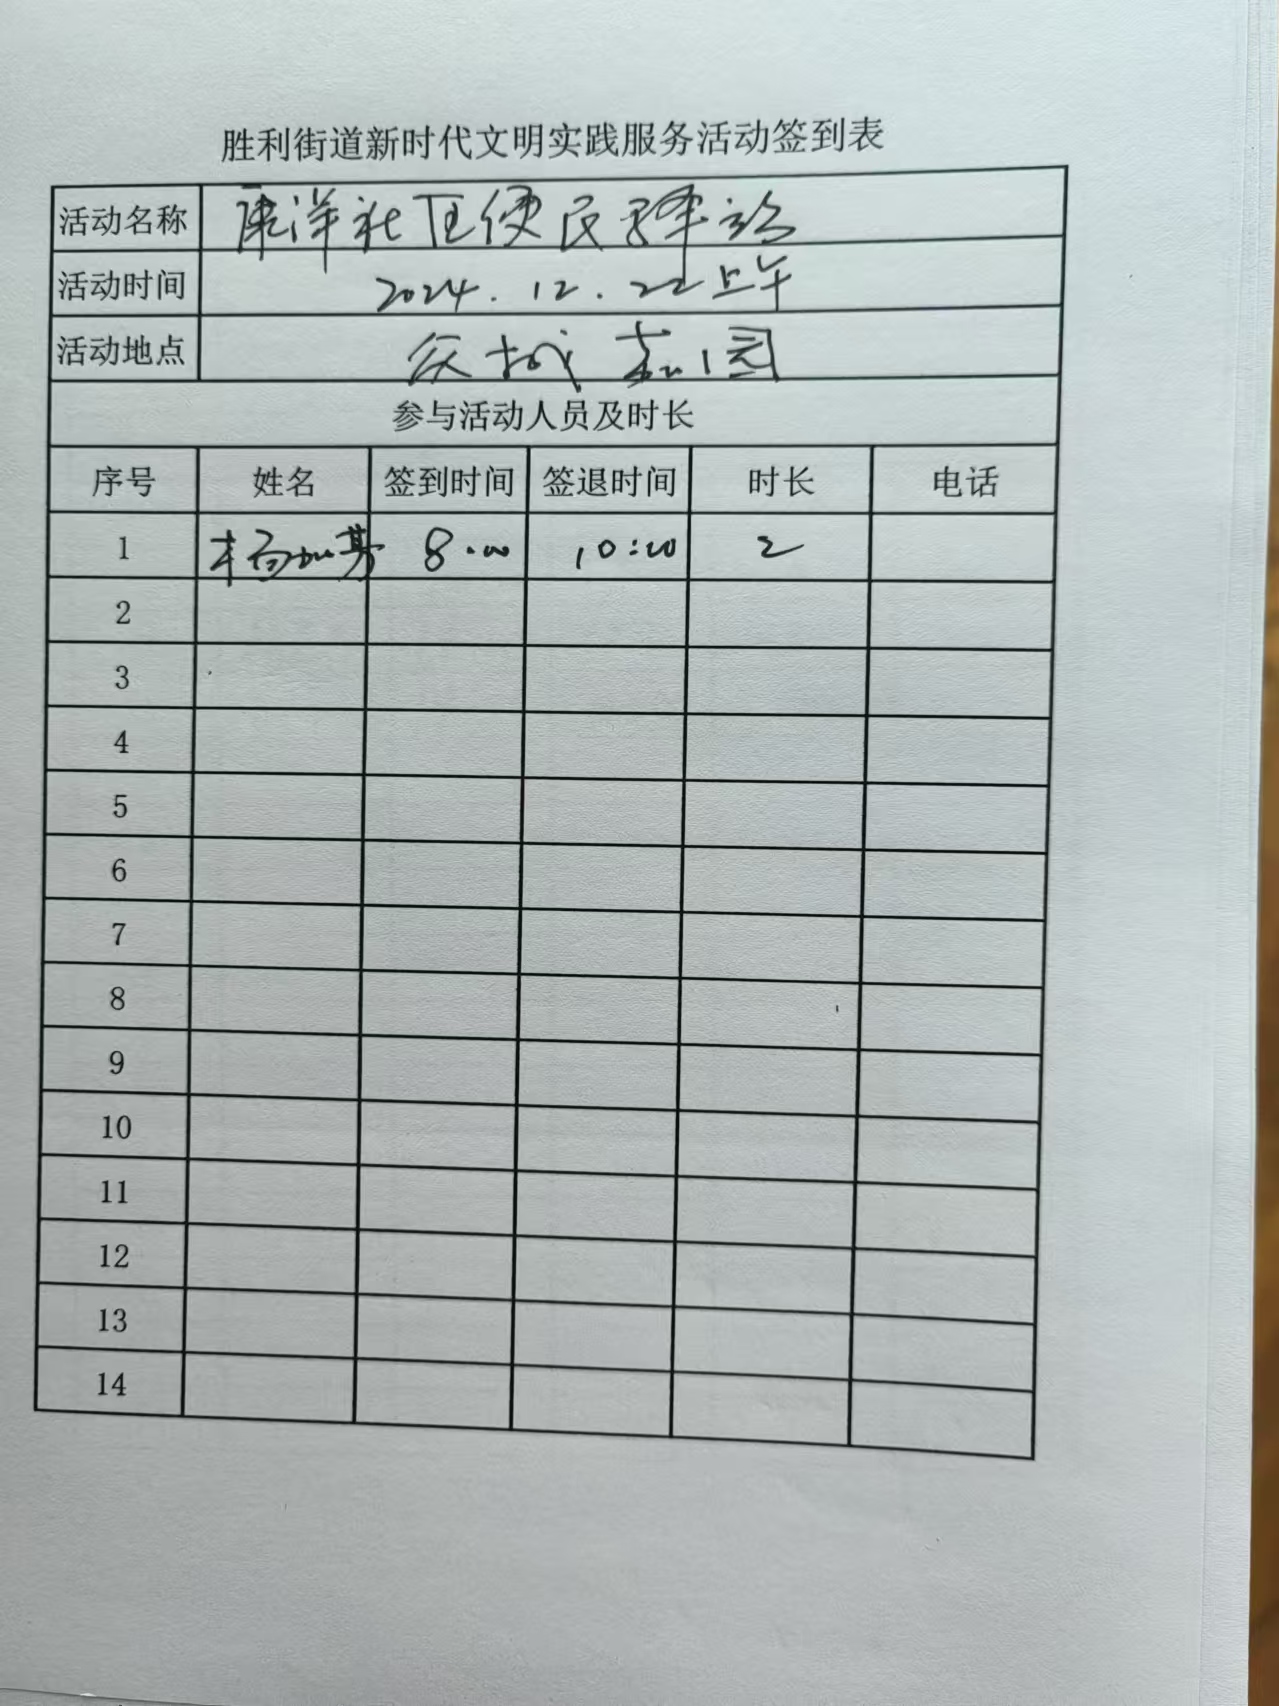 胜利街道新时代文明实践服务活动签到表
活动名称 康洋社区便民驿站
活动时间 2024.12.22上午
活动地点 嘉园
参与活动人员及时长
序号 姓名 签到时间 签退时间 时长 电话
1 杨加 8:00 10:00 2
2
3
4
5
6
7
8
9
10
11
12
13
14